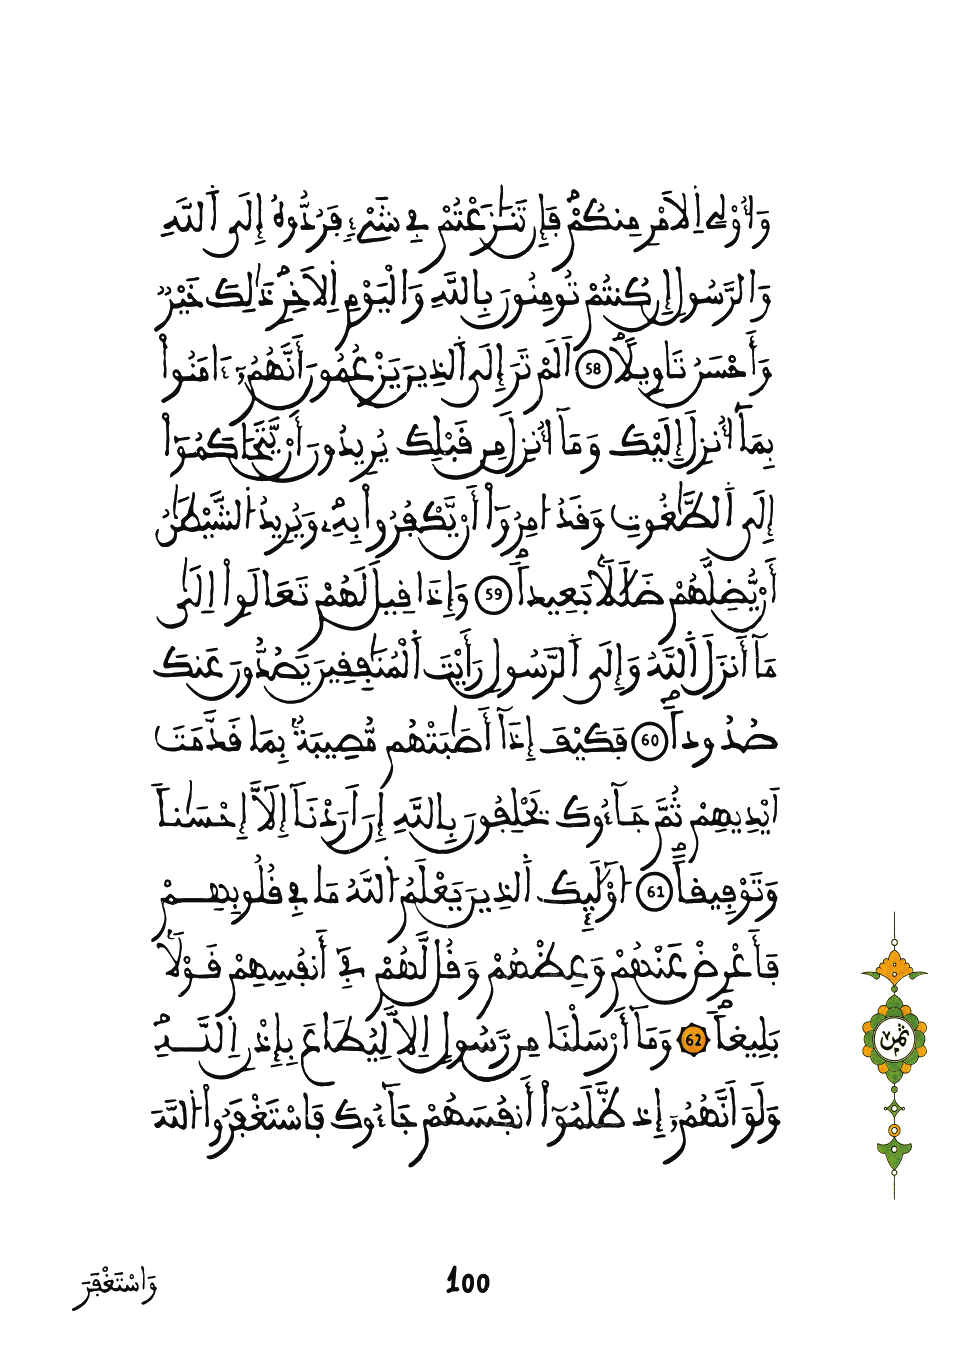 وَأُوْلِے اِ۬لَامْرِ مِنكُمْۖ فَإِن تَنَٰزَعْتُمْ فِے شَےْءٖ فَرُدُّوهُ إِلَي اَ۬للَّهِ
وَالرَّسُولِ إِن كُنتُمْ تُومِنُونَ بِاللَّهِ وَالْيَوْمِ اِ۬لَاخِرِۖ ذَٰلِكَ خَيْرٞ
وَأَحْسَنُ تَاوِيلًاۖ 58 اَلَمْ تَرَ إِلَي اَ۬لذِينَ يَزْعُمُونَ أَنَّهُمُۥٓ ءَامَنُواْ
بِمَآ أُنزِلَ إِلَيْكَ وَمَآ أُنزِلَ مِن قَبْلِكَ يُرِيدُونَ أَنْ يَّتَحَاكَمُوٓاْ
إِلَي اَ۬لطَّٰغُوتِ وَقَدُ ا۟مِرُوٓاْ أَنْ يَّكْفُرُواْ بِهِۦۖ وَيُرِيدُ اُ۬لشَّيْطَٰنُ
أَنْ يُّضِلَّهُمْ ضَلَٰلَاۢ بَعِيداٗۖ 59 وَإِذَا قِيلَ لَهُمْ تَعَالَواْ اِلَيٰ
مَآ أَنزَلَ اَ۬للَّهُ وَإِلَي اَ۬لرَّسُولِ رَأَيْتَ اَ۬لْمُنَٰفِقِينَ يَصُدُّونَ عَنكَ
صُدُوداٗۖ 60 فَكَيْفَ إِذَآ أَصَٰبَتْهُم مُّصِيبَةُۢ بِمَا قَدَّمَتَ
اَيْدِيهِمْ ثُمَّ جَآءُوكَ يَحْلِفُونَ بِاللَّهِ إِنَ اَرَدْنَآ إِلَّآ إِحْسَٰناٗ
وَتَوْفِيقاًۖ 61 ا۟وْلَٰٓئِكَ اَ۬لذِينَ يَعْلَمُ اُ۬للَّهُ مَا فِے قُلُوبِهِمْ
فَأَعْرِضْ عَنْهُمْ وَعِظْهُمْ وَقُل لَّهُمْ فِےٓ أَنفُسِهِمْ قَوْلَاۢ
بَلِيغاٗۖ 62 وَمَآ أَرْسَلْنَا مِن رَّسُولٍ اِلَّا لِيُطَاعَ بِإِذْنِ اِ۬للَّهِۖ
وَلَوَ اَنَّهُمُۥٓ إِذ ظَّلَمُوٓاْ أَنفُسَهُمْ جَآءُوكَ فَاسْتَغْفَرُواْ اُ۬للَّهَ
ثمن
100
وَاسْتَغْفَرَ